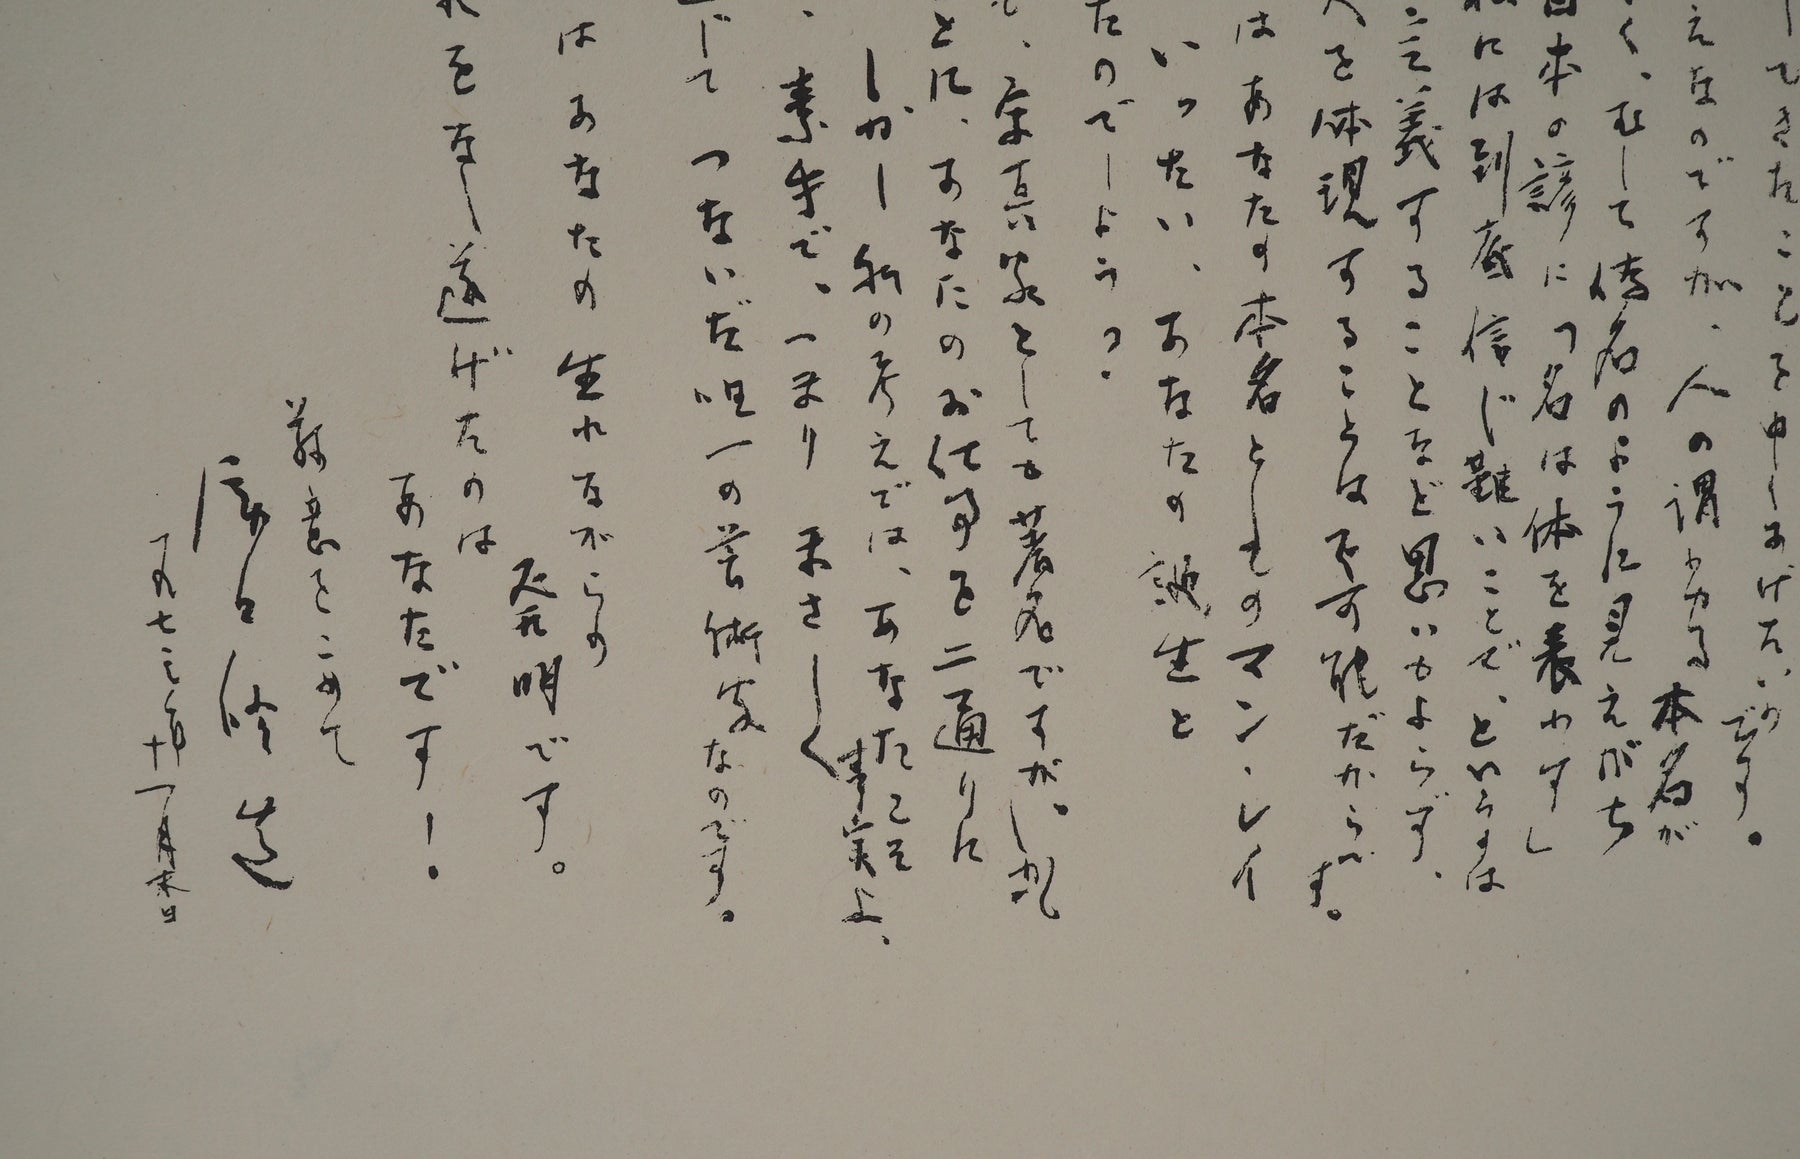 してきたことを申しあげたいのです。
えなのですが、人の謂わゆる本名が
く、むしろ偽名のように見えがち
日本の諺に「名は体を表わす」
私には到底信じ難いことで、というのは
定義することなど思いもよらず、
人を体現することは不可能だからです。
はあなたの本名としてのマン・レイ
いったい、あなたの誕生と
たのでしょう?
、写真家としても著名ですが。しかも
とに、あなたのお仕事を二通りに
しかし私の考えでは、あなたこそ
、素手で、つまりまさしく事実上、
じてつないだ唯一の芸術家なのです。
はあなたの生れながらの
発明です。
れをなし遂げたのは
あなたです!
敬意をこめて
瀧口修造
一九七二年十一月末日